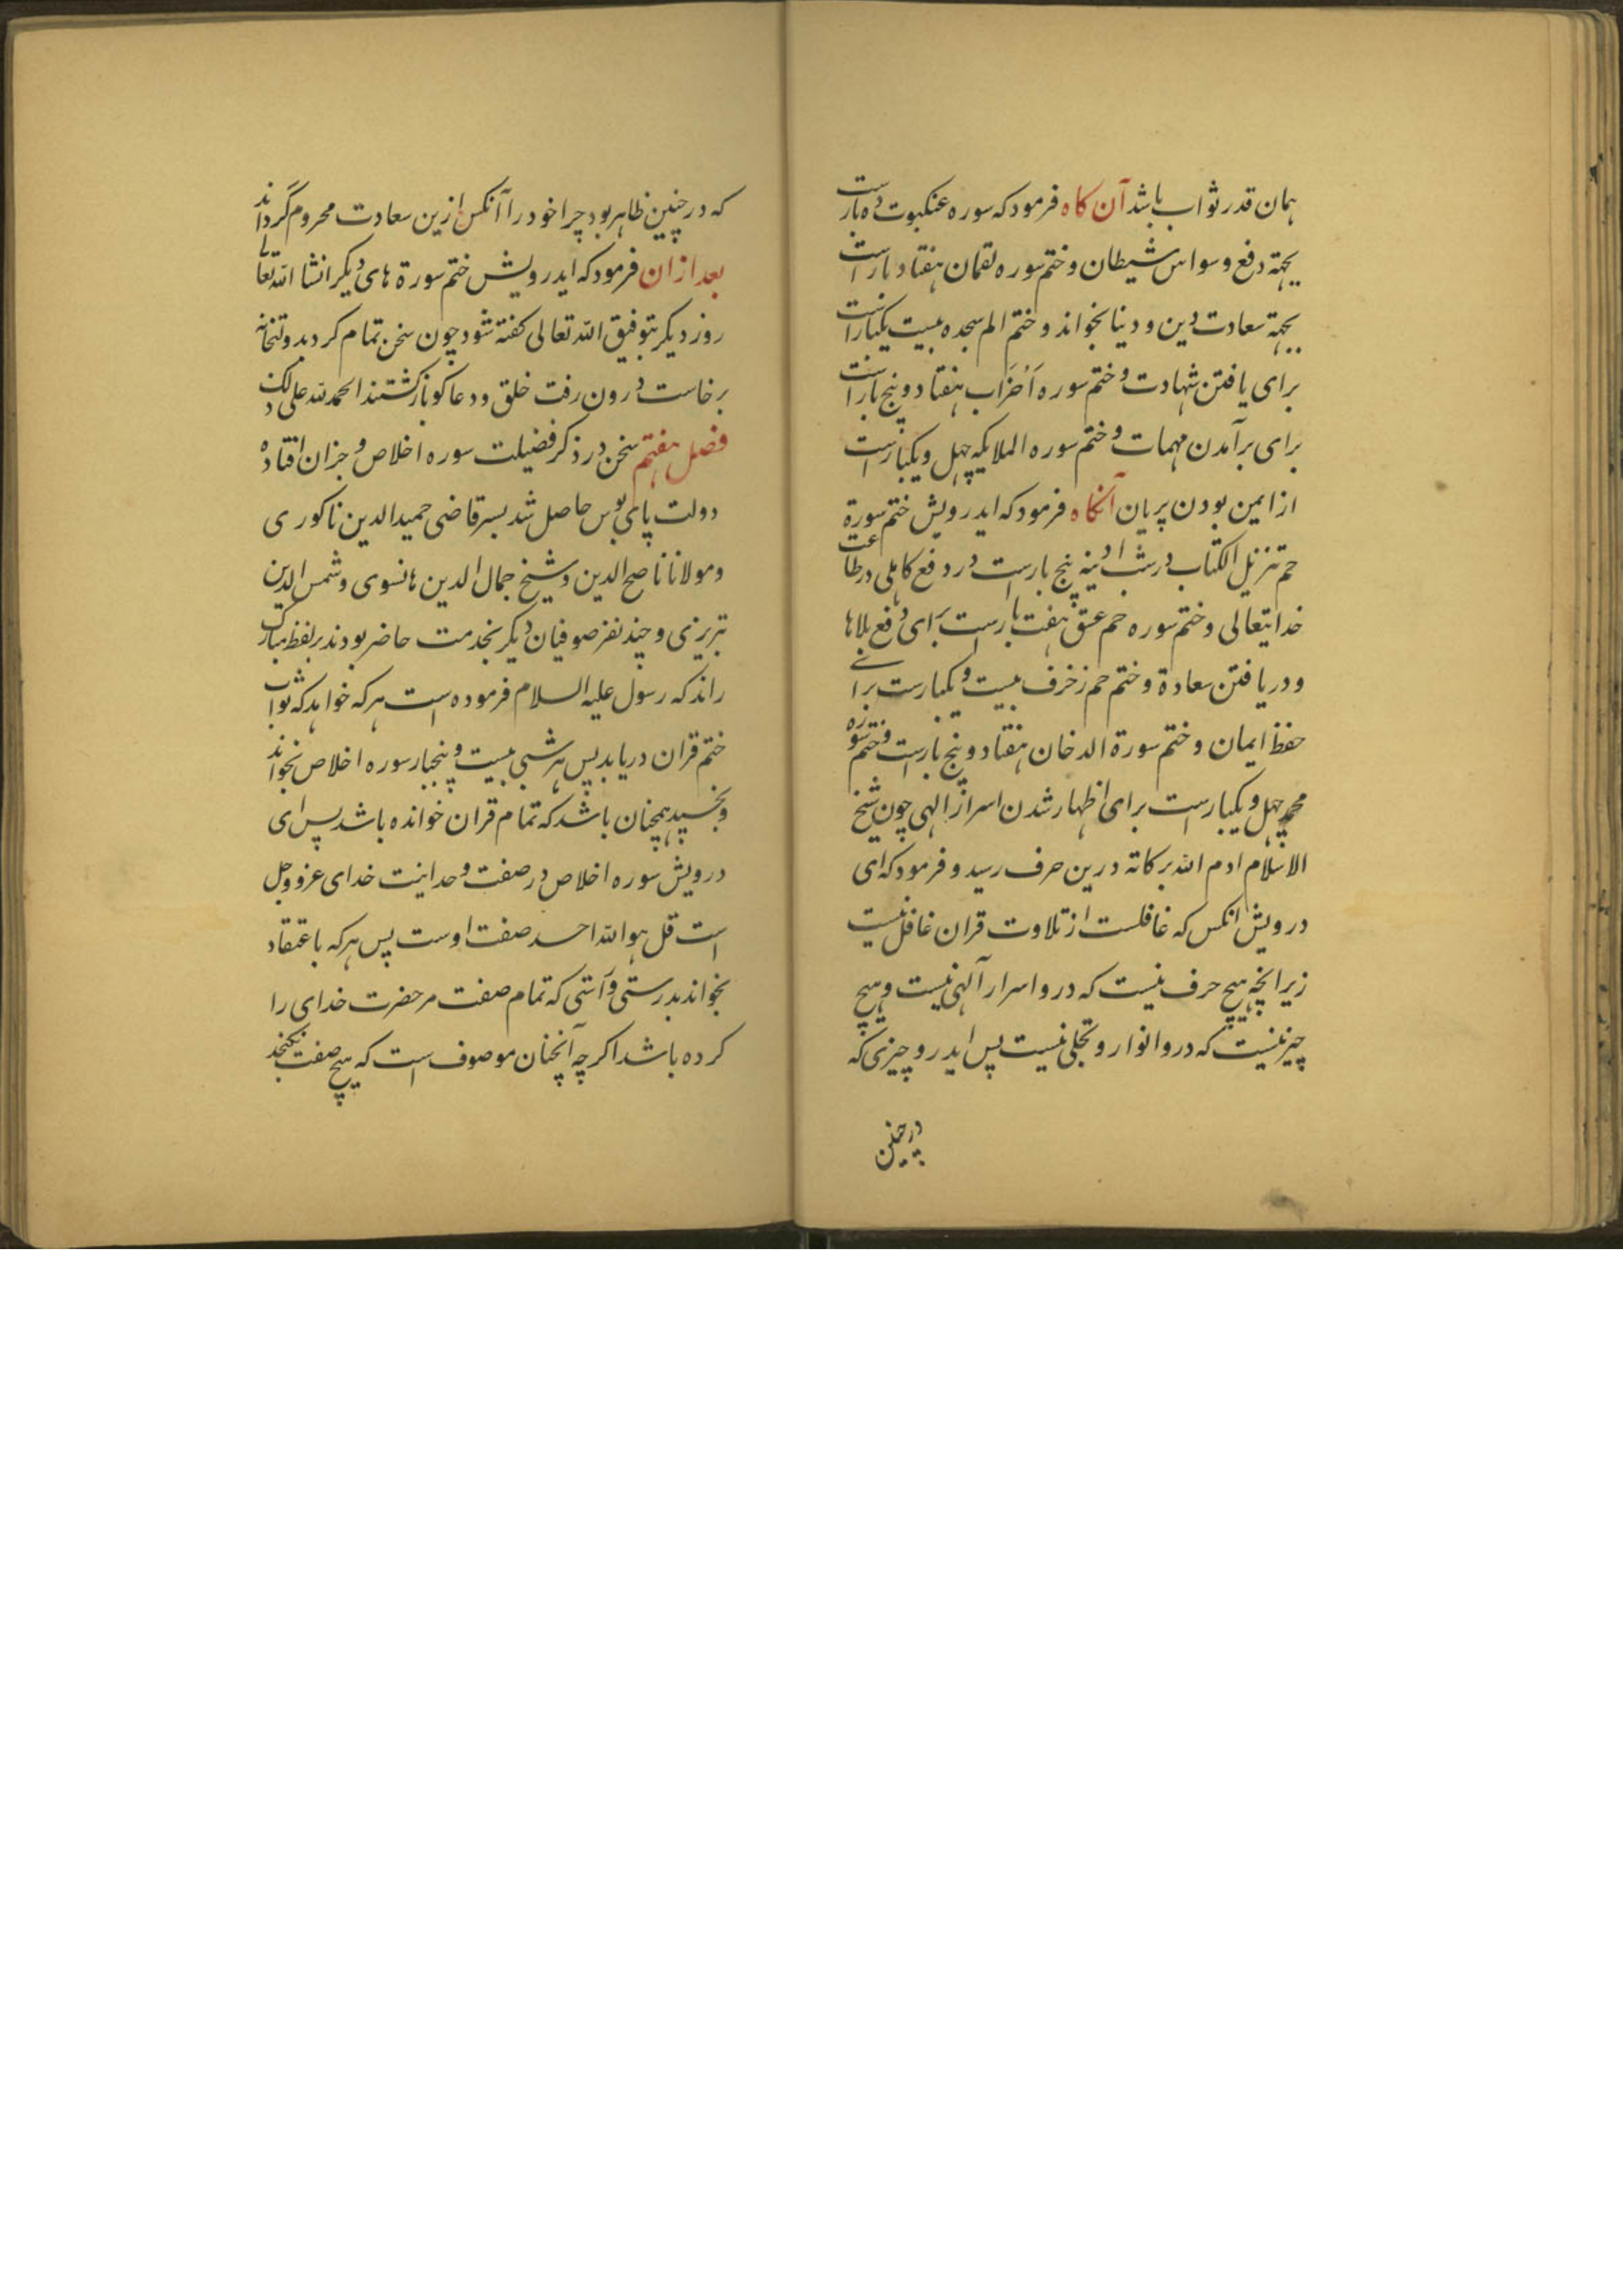 همان قدر ثواب باشد آن کاه فرمود که سوره عنکبوت ده بارست
بجهته دفع وسواس شیطان و ختم سوره لقمان هفتاد بار است
بجهته سعادت دین و دنیا بخواند و ختم الم سجده بیست یکبار است
برای یافتن شهادت و ختم سوره اَحْزَاب هفتاد و پنج بار است
برای برآمدن مهمات و ختم سوره الملایکه چهل و یکبارست
از ایمن بودن پریان آنکاه فرمود که ایدرویش ختم سورة
حم تنزیل الکتاب در شب ادینه پنج بارست در دفع کاهلی در طاعت
خدایتعالی و ختم سوره حم عسق هفت بارست برای دفع بلاها
و در یافتن سعادة و ختم حم زخرف بیست و یکبارست برای
حفظ ایمان و ختم سورة الدخان هفتاد و پنج بارست و ختم سوره
محمد چهل و یکبارست برای اظهار شدن اسرار الهی چون شیخ
الاسلام ادم الله برکاته درین حرف رسید و فرمود که ای
درویش انکس که غافلست از تلاوت قران غافل نیست
زیرانچه هیچ حرف نیست که درو اسرار آلهی نیست و هیچ
چیز نیست که درو انوار و تجلی نیست پس ایدرو چیزی که
در چنین
که در چنین ظاهر بود چرا خود را آنکس ازین سعادت محروم گرداند
بعد ازان فرمود که ایدرویش ختم سورة های دیکر انشا الله تعالی
روز دیکر بتوفیق الله تعالی کفته شود چون سخن تمام کرد
برخاست درون رفت خلق و دعاکو بازکشتند الحمد لله علی ذلک
فصل هفتم سخن در ذکر فضیلت سوره اخلاص و جزان افتاده
دولت پای بوس حاصل شد پسر قاضی حمید الدین ناکوری
و مولانا ناصح الدین و شیخ جمال الدین هانسوی و شمس الدین
تبریزی و چند نفر صوفیان دیکر بخدمت حاضر بودند بر لفظ مبارک
راند که رسول علیه السلام فرموده است هر که خواهد که ثواب
ختم قران دریابد پس هر شبی بیست و پنجبار سوره اخلاص بخواند
و بخسپد همچنان باشد که تمام قران خوانده باشد پس ای
درویش سوره اخلاص در صفت وحدانیت خدای عز و وجل
است قل هو الله احد صفت اوست پس هر که باعتقاد
بخواند بدرستی و آستی که تمام صفت مر حضرت خدای را
کرده باشد اکر چه آنچنان موصوف است که هیچ صفت نکنجد